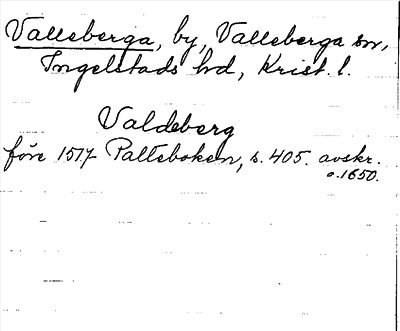 Valleberga, by, Valleberga sn,
Ingelstads hd, Krist. l.
Valdeberg
före 1517 Palteboken, s. 405. avskr.
o. 1650.